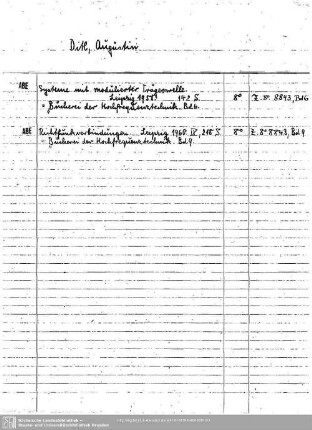 Ditl, Augustin
ABE Systeme mit modulierter Trägerwelle.
Leipzig 1958. 142 S. 8° Z. 8° 8843, Bd6
= Bücherei der Hochfrequenztechnik. Bd 6.
ABE Richtfunkverbindungen. Leipzig 1960. IV, 218 S. 8° Z. 8° 8843, Bd 9
= Bücherei der Hochfrequenztechnik. Bd 9.
Sächsische Landesbibliothek -
Staats- und Universitätsbibliothek Dresden